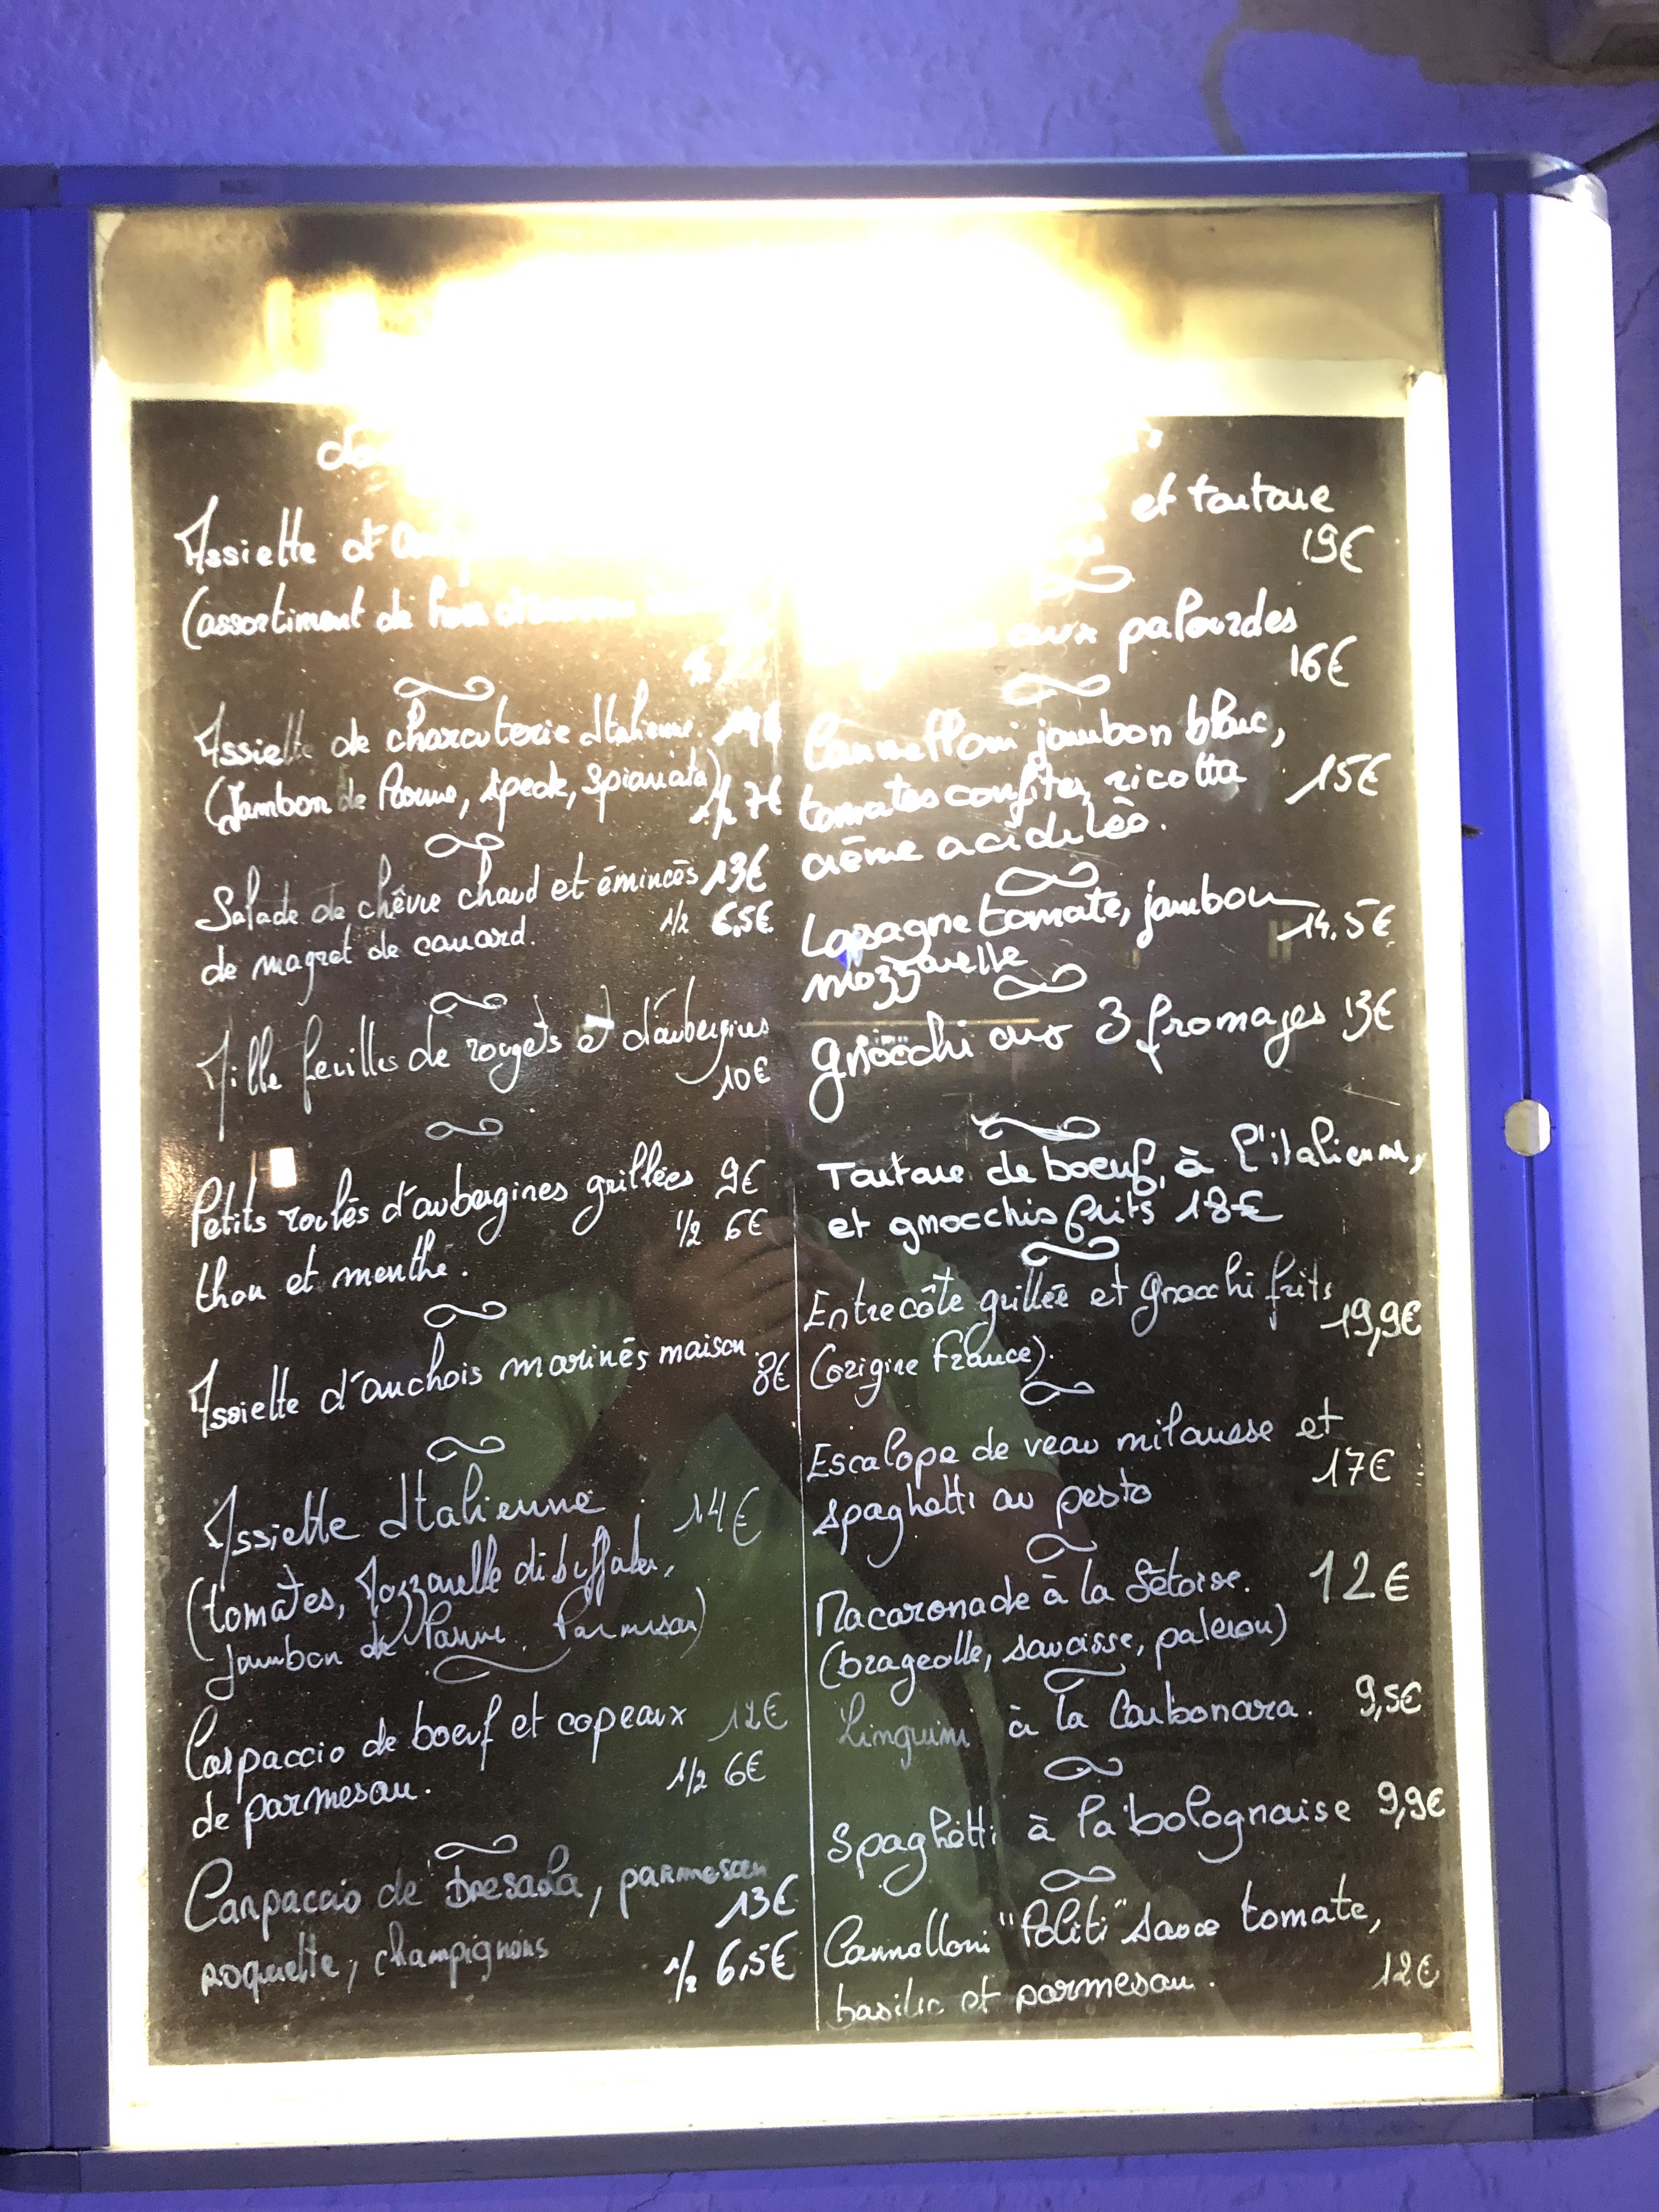 Assiette d'
(assortiment de
Assiette de charcuterie Italienne. 14€
(Jambon de Parme, speck, Spianata)
1/2 7€
Salade de chèvre chaud et émincés 13€
1/2 6,5€
de magret de canard.
Mille feuilles de rougets et d'aubergines
10€
Petits roulés d'aubergines grillées 9€
1/2 6€
thon et menthe.
Assiette d'anchois marinés maison.
8€
Assiette Italienne 14€
(tomates, Mozzarelle di buffala,
jambon de Parme, Parmesan)
Carpaccio de boeuf et copeaux 12€
1/2 6€
de parmesan.
Carpaccio de Bresaola, parmesan
13€
roquette, champignons
1/2 6,5€
et tartare
19€
aux palourdes
16€
Cannelloni jambon blanc,
tomates confites, ricotta 15€
crème acidulée.
Lasagne tomate, jambon
14.5€
mozzarelle
gnocchi aux 3 fromages 13€
Tartare de boeuf, à l'italienne,
et gnocchis frits 18€
Entrecôte grillée et gnocchi frits
19,9€
(origine France).
Escalope de veau milanaise et
17€
spaghetti au pesto
Macaronade à la Sétoise. 12€
(brageolle, saucisse, paleron)
Linguini à la Carbonara. 9,5€
Spaghetti à la bolognaise 9,9€
Cannelloni "Politi" sauce tomate,
12€
basilic et parmesan.